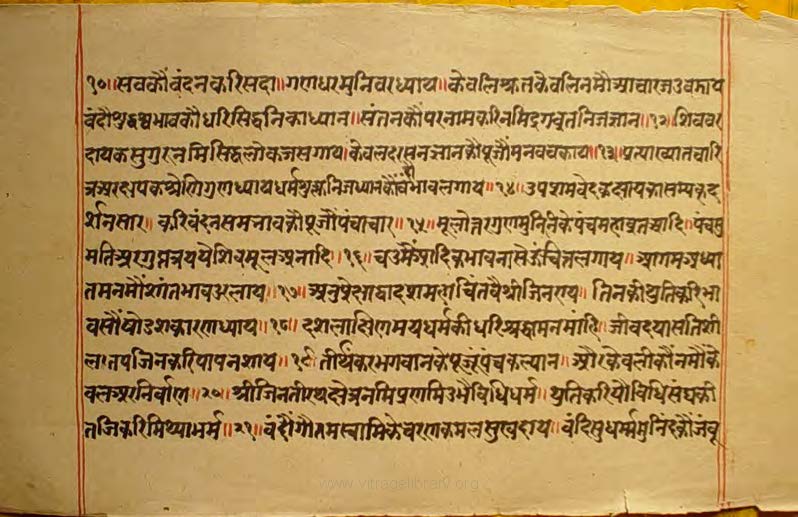 १०॥ सवकौंवंदनकरिसदा॥ गणधरमुनिवरध्याय॥ केवलिश्रुतकेवलिनमौआचारजउवझाय
वंदौशुद्धस्वभावकौधरिसिद्धनिकाध्यान॥ संतनकौंपरनामकरिनमिदृगवृतनिजज्ञान॥१२॥ शिववर
दायकसुगुरनमिसिद्धलोकजसगाय॥ केवलदरसनज्ञानकौपूजौंमनवचकाय॥१३॥ प्रत्याख्यातचारि
त्रअरक्षपकश्रेणिगुणध्यायधर्मशुक्लनिजध्यानकौवंदौभावलगाय॥१४॥ उपशमवेदकक्षायकासम्यकद
र्शनसार॥ करिवंदनसमभावकौपूजौंपंचाचार॥१५॥ मूलोतरगुणमुनिनकेपंचमहाव्रतआदि॥ पंचसु
मतिअरगुप्तत्रययेशिवमूलअनादि॥१६॥ आगमअध्या
तममनमौंशांतभाव १७॥ तिनकीथुतिकरिभा
वसौंषोडशकारणध्याय॥१८॥ दशलाक्षिणमयधर्मकीधरिश्रद्धामनमांहि॥ जीवदयासतिशी
लातपजिनकरिपापनशाय॥१९॥ तीर्थंकरभगवानकेपूजूंपंचकल्यान॥ औरकेवलीकौंनमौंके
वलअरनिर्वाण॥२०॥ श्रीजिनतीरथक्षेत्रनमिप्रणमिउभैविधिधर्म॥ थुतिकरियौविधिसंघकी
तजिकरिमिथ्याभर्म॥२१॥ वंदौंगौतमस्वामिकेचरणकमलसुखदाय॥ वंदिसुधर्ममुनिंदकौजंबू
www.vitragelibrary.org